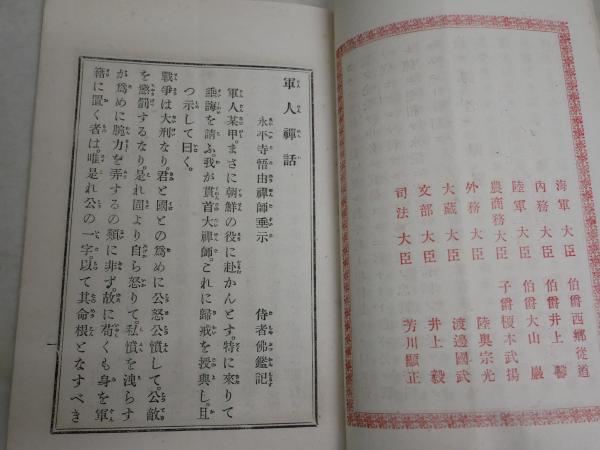 海軍大臣 伯爵西郷從道
内務大臣 伯爵井上馨
陸軍大臣 伯爵大山巖
農商務大臣 子爵榎本武揚
外務大臣 陸奥宗光
大藏大臣 渡邊國武
文部大臣 井上毅
司法大臣 芳川顯正
軍人禪話
永平寺悟由禪師垂示 侍者佛鑑記
軍人某甲。まさに朝鮮の役に赴かんとす。特に來りて
垂誨を請ふ。我が貫首大禪師。これに歸戒を授與し。且
つ示して曰く。
戰爭は大刑なり。君と國との爲めに公怒公憤して。公敵
を懲罰するなり。是れ固より自ら怒りて。私憤を洩らす
が爲めに腕力を弄するの類に非ず。故に苟くも身を軍
籍に置く者は。唯是れ公の一字。以て其命根となすべき
一